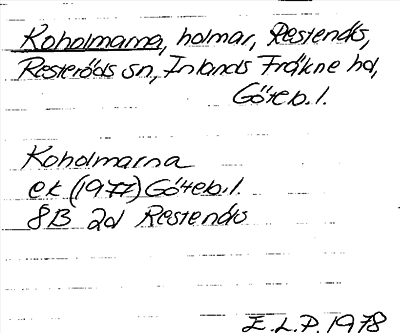 Koholmarna, holmar, Restenäs,
Resteröds sn, Inlands Fräkne hd,
Göteb. l.
Koholmarna
ek (1977) Göteb. l.
8B 2d Restenäs
E.L.P. 1978